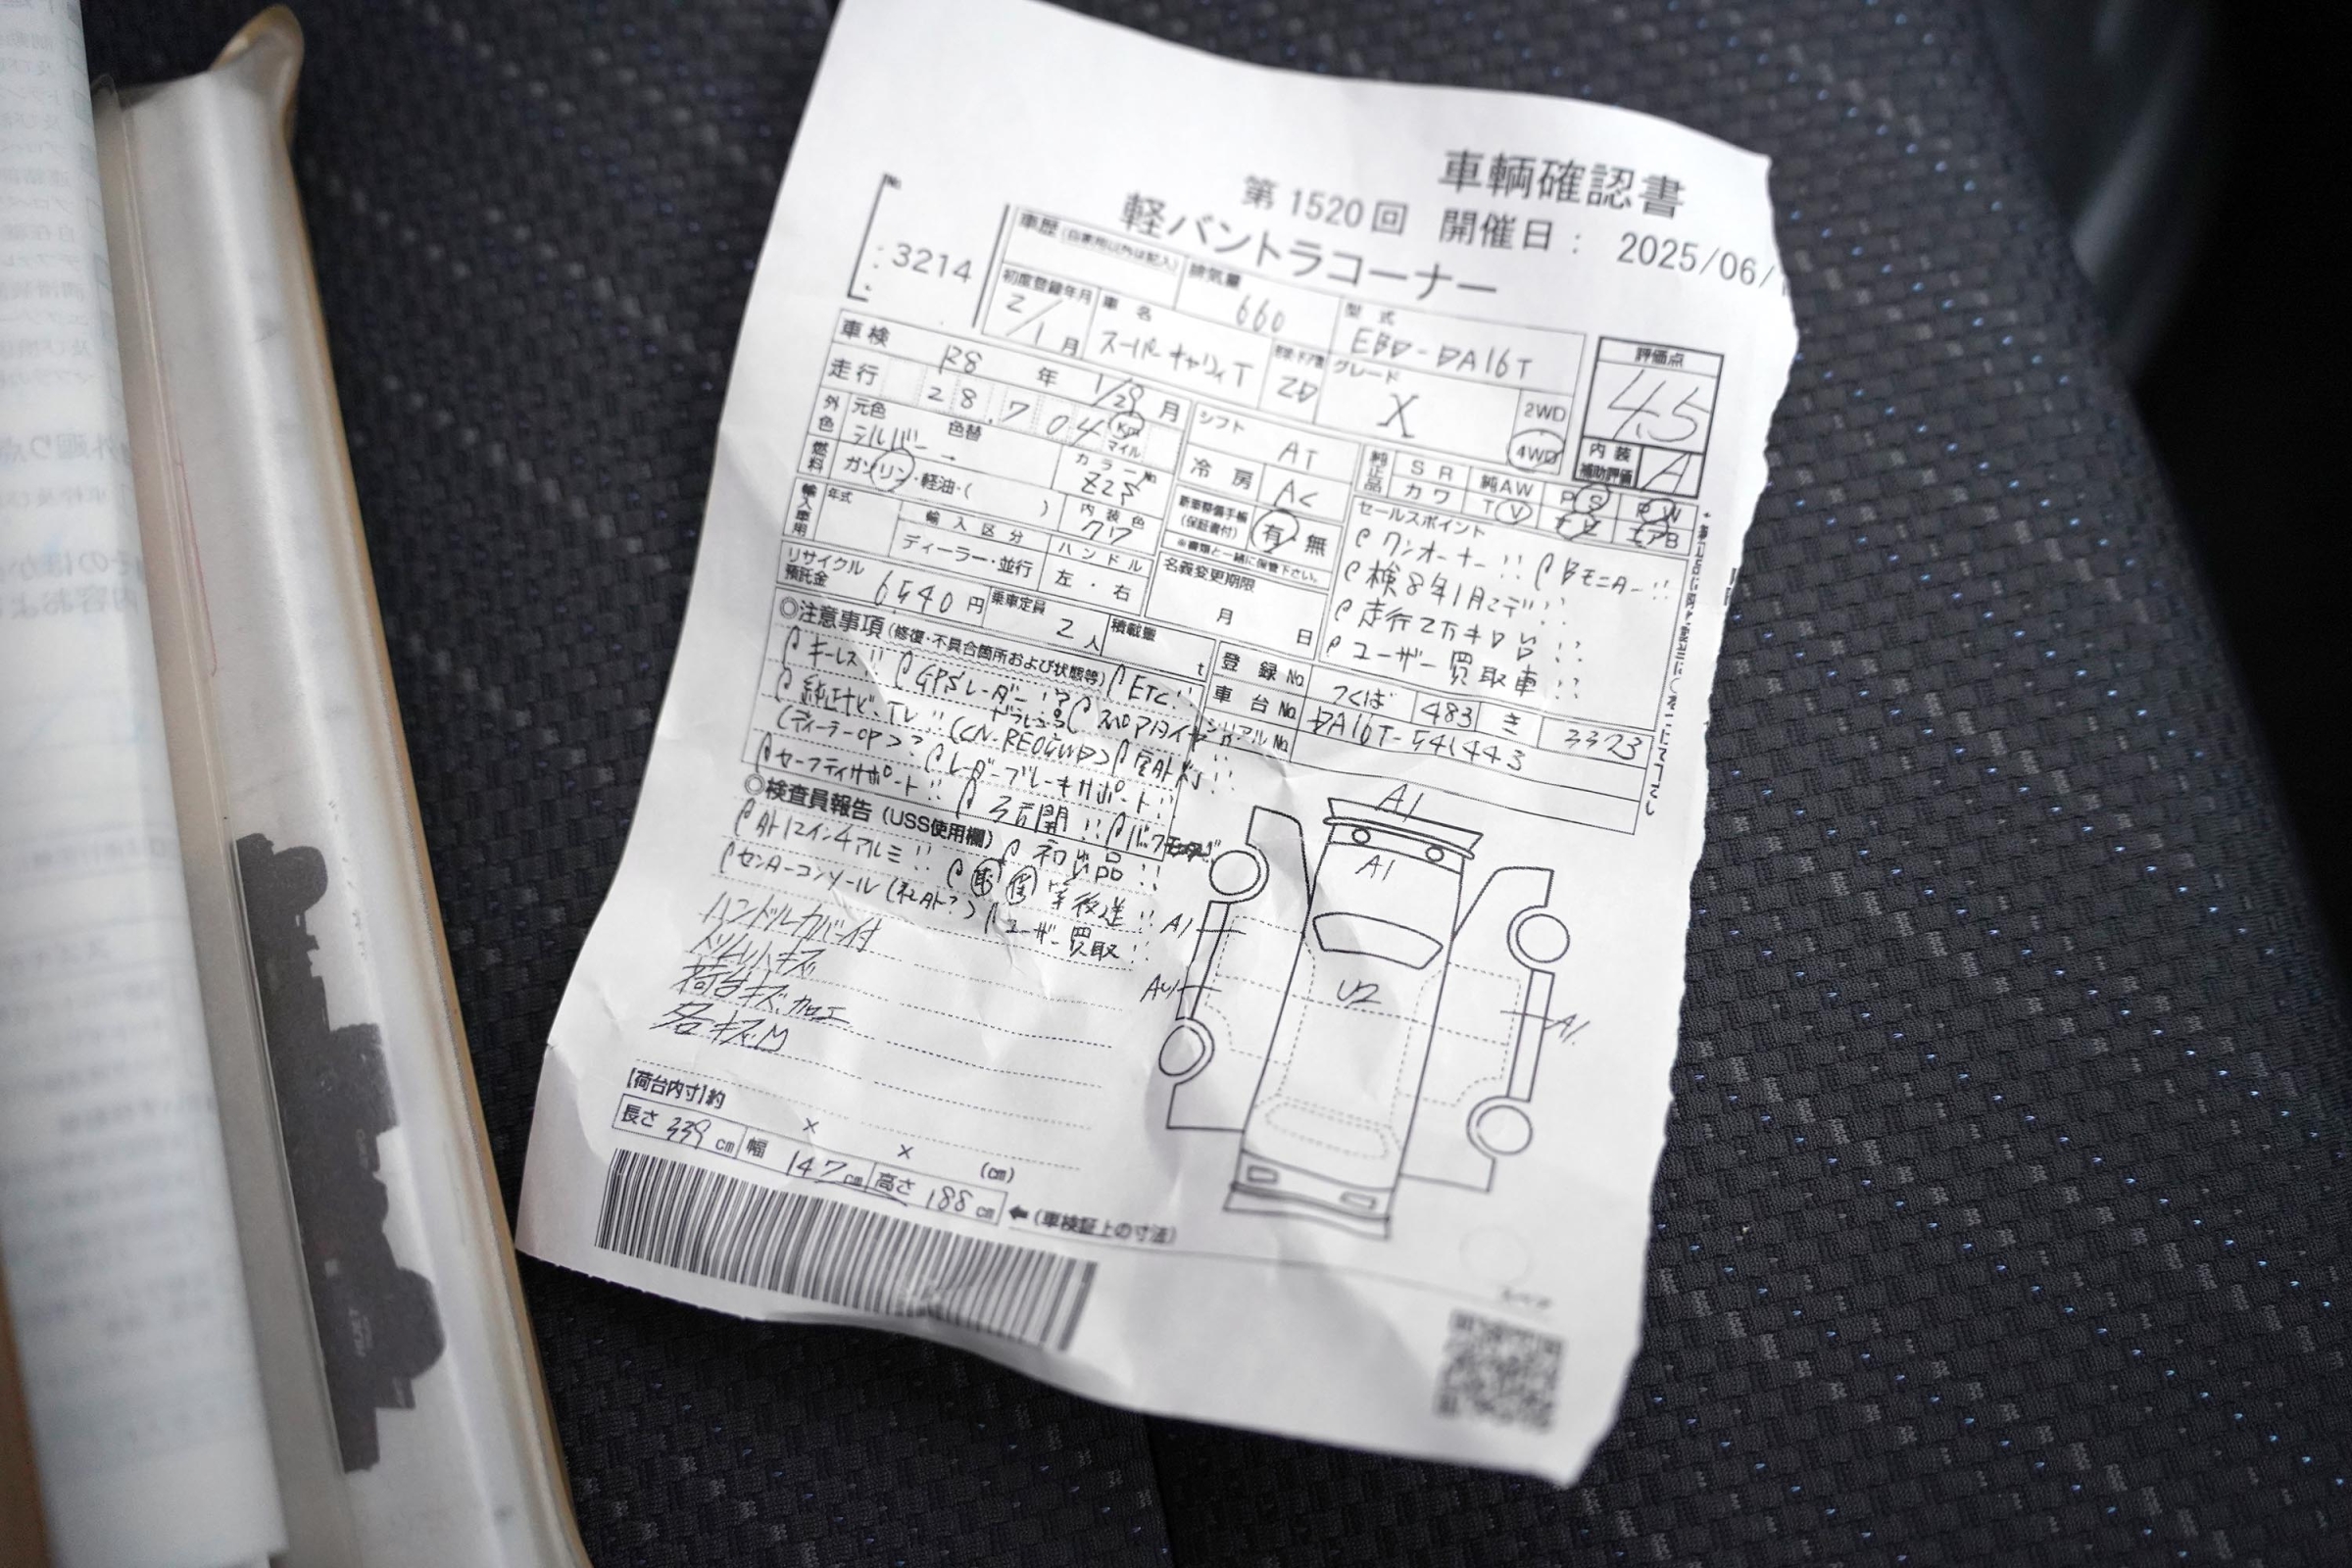 車輌確認書
第1520回 開催日: 2025/06/
軽バントラコーナー
No.
3214
車歴 (自家用以外は記入)
排気量 660
型式 EBD-DA16T
初度登録年月 2/1月
車名 スーパーキャリイT
2D
グレード X
2WD
4WD
評価点 4.5
内装補助評価 A
車検 R8年 1/29月
走行 28,704 Km マイル
シフト AT
外色 元色 シルバー → 色替
カラーNo. Z2S
冷房 AC
純正品 SR 純AW PS PW
カワ TV ナビ エアB
燃料 ガソリン・軽油・( )
内装色 クロ
新車整備手帳 (保証書付) 有・無
※書類と一緒に保管下さい。
セールスポイント
ワンオーナー!! Bモニター!!
検8年1月マデ!!
走行2万キロ台!!
ユーザー買取車!!
輸入車用 年式
輸入区分 ディーラー・並行
ハンドル 左・右
名義変更期限 月 日
リサイクル預託金 6,540円
乗車定員 2人
積載量 t
登録No. つくば 483 き 3323
車台No. DA16T-541443
シリアルNo.
◎注意事項 (修復・不具合箇所および状態等)
キーレス!! GPSレーダー!? ETC!!
純正ナビ・TV!!
セーフティサポート!! レーダーブレーキサポート!!
◎検査員報告 (USS使用欄)
外12インチアルミ!!
センターコンソール (社外?) ユーザー買取!!
ハンドルカバー付
荷台キズ、加工
各キズM
A1
A1
A1
U2
A1
【荷台内寸】約 × × (cm)
長さ 339 cm 幅 147 cm 高さ 188 cm ←(車検証上の寸法)